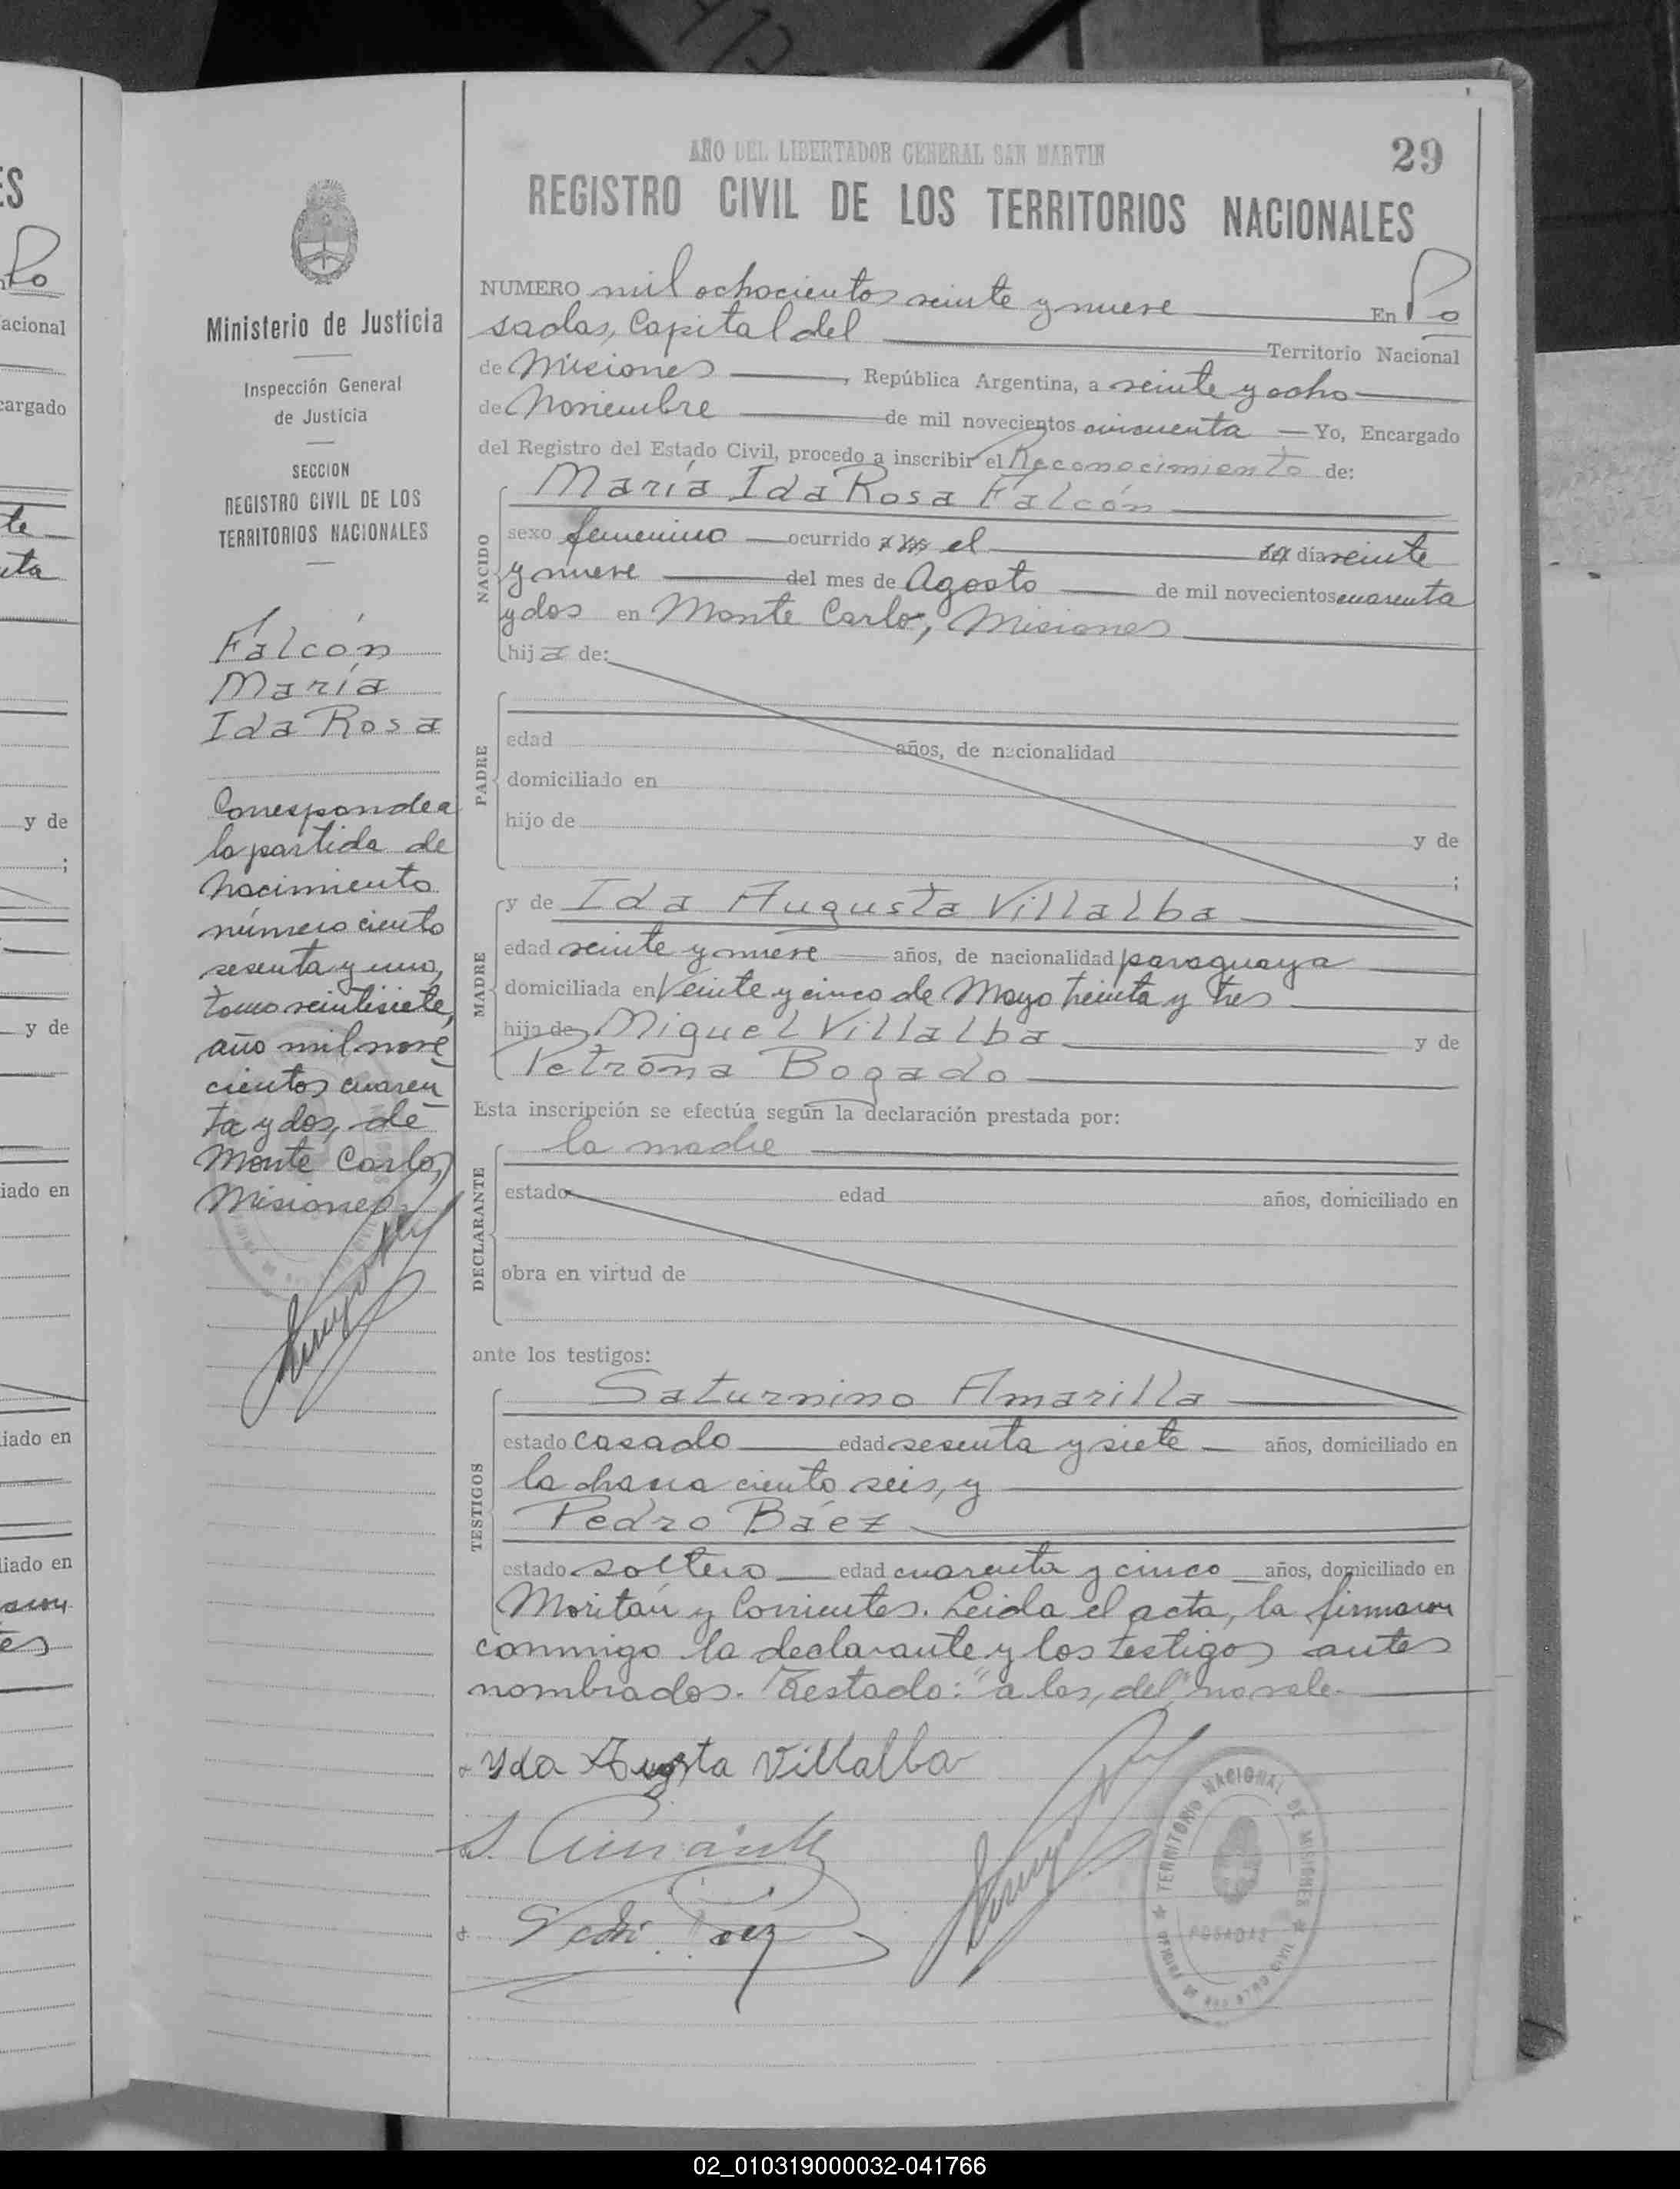 AÑO DEL LIBERTADOR GENERAL SAN MARTIN
29
REGISTRO CIVIL DE LOS TERRITORIOS NACIONALES
NUMERO mil ochocientos veinte y nueve En Po
sadas, Capital del Territorio Nacional
de Misiones, República Argentina, a veinte y ocho
de Noviembre de mil novecientos cincuenta Yo, Encargado
del Registro del Estado Civil, procedo a inscribir el Reconocimiento de:
NACIDO
María Ida Rosa Falcón
sexo femenino ocurrido a las el del día veinte
y nueve del mes de Agosto de mil novecientos cuarenta
y dos en Monte Carlo, Misiones
hija de:
PADRE
edad años, de nacionalidad
domiciliado en
hijo de y de
;
MADRE
y de Ida Augusta Villalba
edad veinte y nueve años, de nacionalidad paraguaya
domiciliada en Veinte y cinco de Mayo treinta y tres
hija de Miguel Villalba y de
Petrona Bogado
Esta inscripción se efectúa según la declaración prestada por:
DECLARANTE
la madre
estado edad años, domiciliado en
obra en virtud de
ante los testigos:
TESTIGOS
Saturnino Amarilla
estado casado edad sesenta y siete años, domiciliado en
la chacra ciento seis, y
Pedro Báez
estado soltero edad cuarenta y cinco años, domiciliado en
Moritán y Corrientes. Leida el acta, la firmaron
conmigo la declarante y los testigos antes
nombrados. Testado: "a las, del" no vale.
Yda Augsta Villalba
TERRITORIO NACIONAL DE MISIONES
POSADAS
Ministerio de Justicia
Inspección General
de Justicia
SECCION
REGISTRO CIVIL DE LOS
TERRITORIOS NACIONALES
Falcón
María
Ida Rosa
Corresponde a
la partida de
nacimiento
número ciento
sesenta y uno,
tomo veintisiete,
año mil nove
cientos cuaren
ta y dos, de
Monte Carlo,
Misiones
ES
Po
acional
cargado
te
nta
y de
;
y de
iado en
iado en
iado en
aron
es
02_010319000032-041766